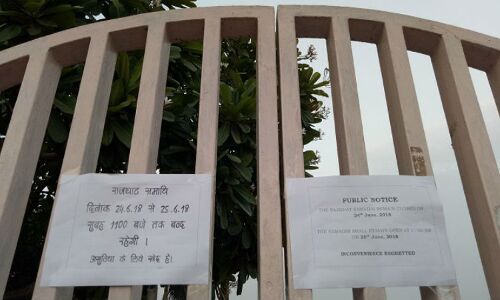 राजघाट समाधि
दिनांक 24.6.18 से 25.6.18
सुबह 1100 बजे तक बन्द
रहेगी ।
असुविधा के लिये खेद है।
PUBLIC NOTICE
THE RAJGHAT SAMADHI REMAIN CLOSED ON
24th June, 2018
THE SAMADHI SHALL REMAIN OPEN AT
ON 25th June, 2018
INCONVENIENCE REGRETTED